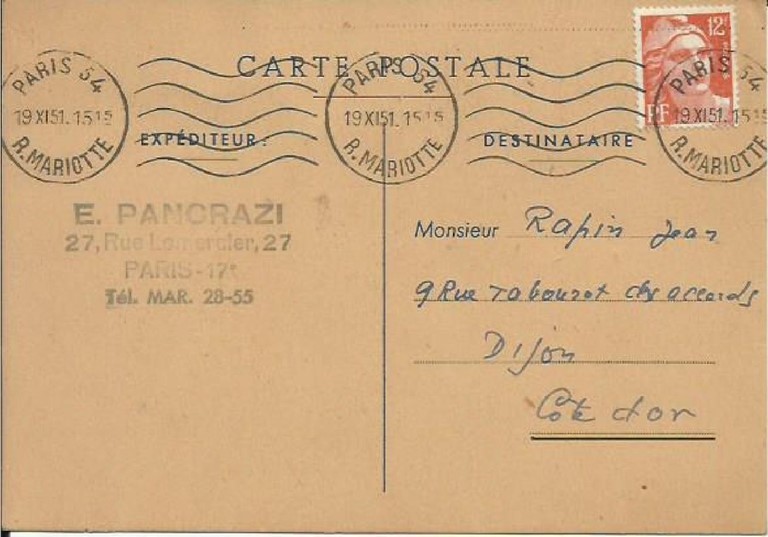 CARTE POSTALE
12F
RF
PARIS 54
19 XI 51. 15 15
R. MARIOTTE
PARIS 54
19 XI 51. 15 15
R. MARIOTTE
PARIS 54
19 XI 51. 15 15
R. MARIOTTE
EXPÉDITEUR :
DESTINATAIRE
E. PANCRAZI
27, Rue Lemercier, 27
PARIS-17e
Tél. MAR. 28-55
Monsieur Rapin Jean
9 Rue Tabourot des accords
Dijon
Côte d'or